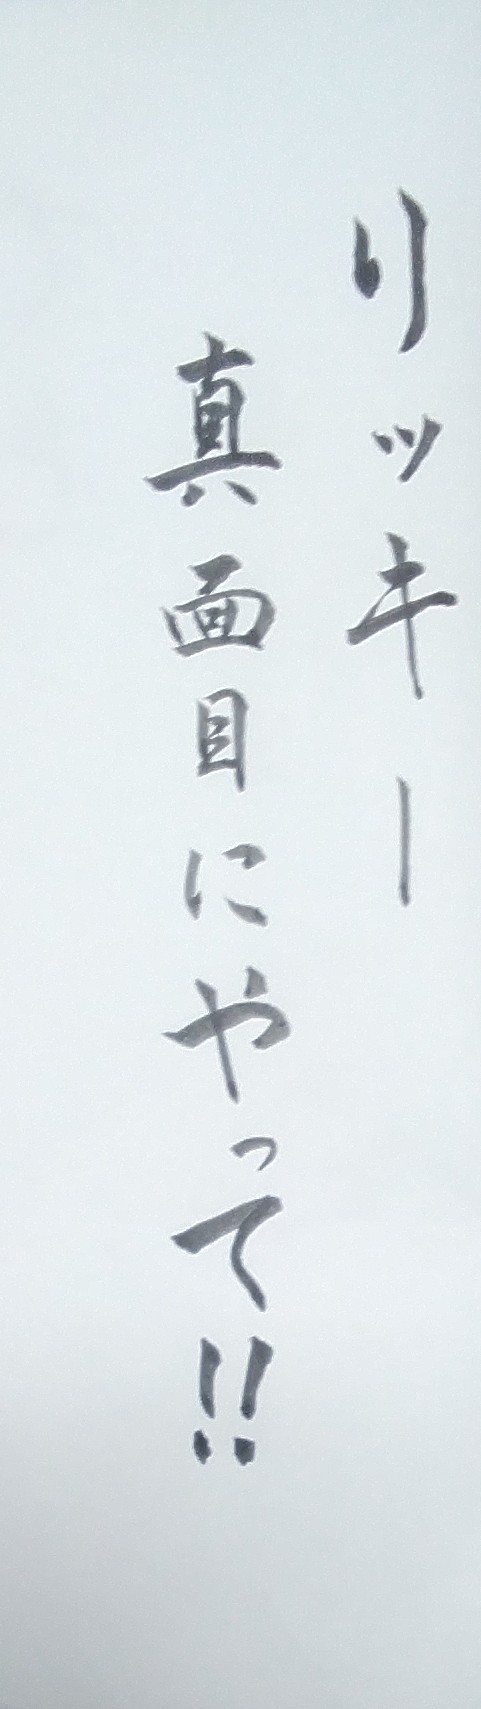 リッキー
真面目にやって!!